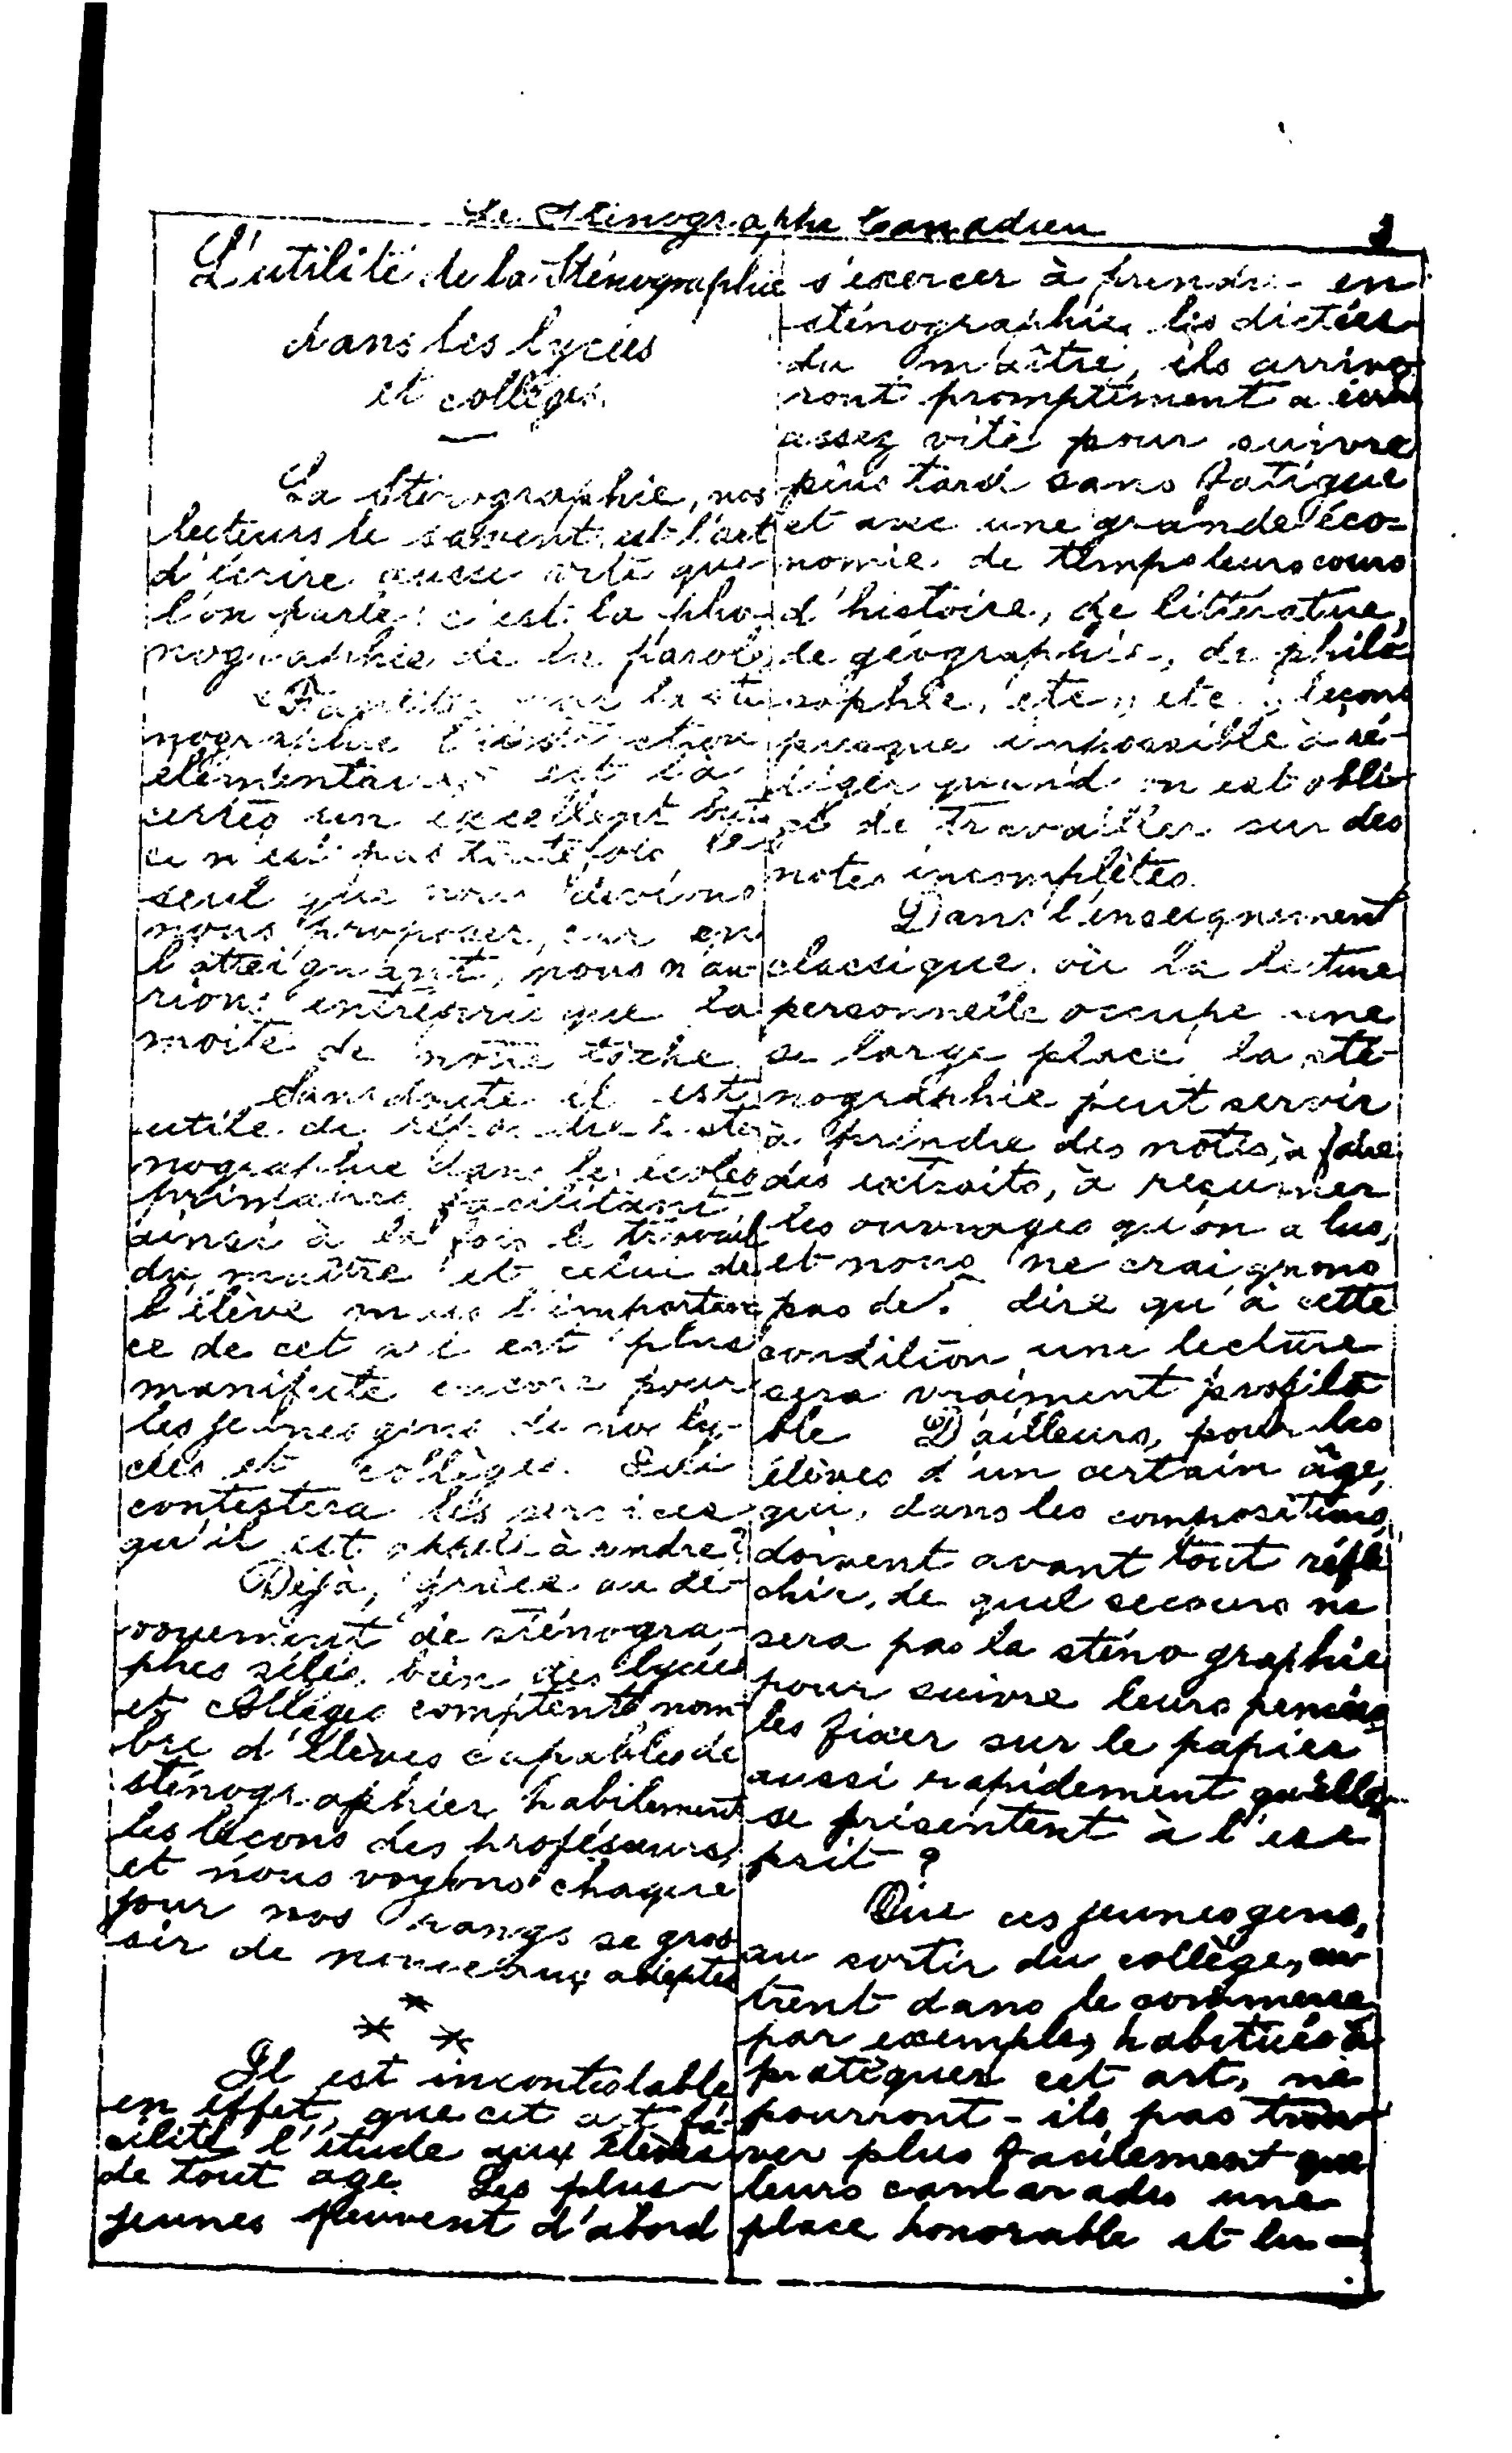 Le Sténographe Canadien
3
L'utilité de la Sténographie
dans les lycées
et collèges.
La Sténographie, nos
lecteurs le savent est l'art
d'écrire aussi vite que
l'on parle: c'est la pho
nographie de la parole
la sté
nographie
élémentaire est là
certes un excellent but
ce n'est pas toutefois le
seul que nous devions
nous proposer, car en
l'atteignant, nous n'au
rions entrepris que la
moité de notre tâche.
Sans doute il est
utile de répandre la sté
nographie dans les écoles
primaires facilitant
ainsi à la fois le travail
du maître et celui de
l'élève mais l'importan
ce de cet art est plus
manifeste encore pour
les jeunes gens de nos ly-
cées et collèges. Qui
contestera les services
qu'il est appelé à rendre?
Déjà, grâce au dé-
vouement de sténogra-
phes zélés, bien des lycées
et collèges comptent nom
bre d'élèves capables de
sténographier habilement
les leçons des professeurs,
et nous voyons chaque
jour nos rangs se gros
sir de nouveaux adeptes
* * *
Il est incontestable
en effet, que cet art fa-
cilite l'étude aux élèves
de tout age. Les plus
jeunes peuvent d'abord
s'exercer à prendre en
sténographie les dictées
du maître, ils arrive
ront promptement a écrire
assez vite pour suivre
plus tard sans fatigue
et avec une grande éco-
nomie de temps leurs cours
d'histoire, de littérature,
de géographie, de philo
sophie, etc, etc., leçons
presque impossible à ré-
diger quand on est obli
gé de travailler sur des
notes incomplètes.
Dans l'enseignement
classique, où la lecture
personnelle occupe une
si large place, la sté-
nographie peut servir
à prendre des notes, à faire
des extraits, à résumer
les ouvrages qu'on a lus,
et nous ne craignons
pas de dire qu'à cette
condition une lecture
sera vraiment profita
ble D'ailleurs, pour les
élèves d'un certain âge,
qui, dans les compositions,
doivent avant tout réflé
chir, de quel secours ne
sera pas la sténographie
pour suivre leurs pensées,
les fixer sur le papier
aussi rapidement qu'elles
se présentent à l'es
prit?
Que ces jeunes gens,
au sortir du collège, en
trent dans le commerce
par exemple, habitués à
pratiquer cet art, ne
pourront-ils pas trou-
ver plus facilement que
leurs camarades une
place honorable et lu-